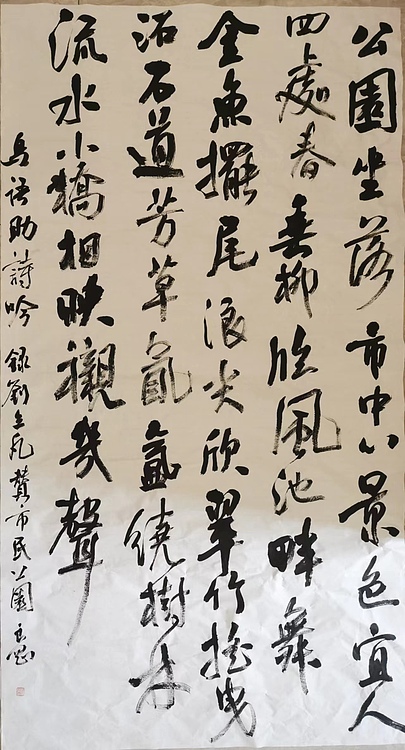 公園坐落市中心景色宜人
四處春垂柳臨風池畔舞
金魚擺尾浪尖欣翠竹搖曳
沿石道芳草氤氳繞樹林
流水小橋相映襯幾聲
鳥語助詩吟 錄劉贊市民公園